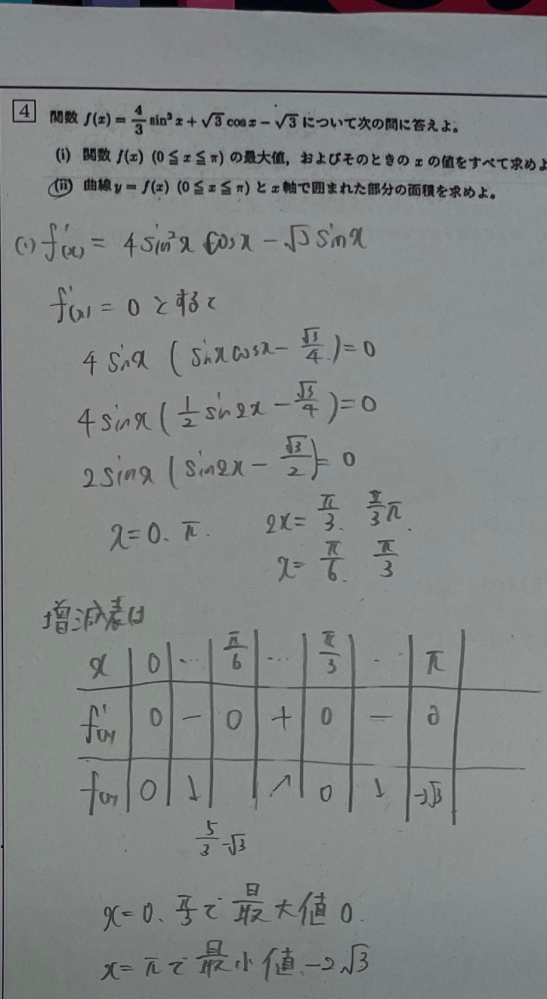 4 関数 f(x) = 4/3 sin³x + √3 cos x − √3 について次の問に答えよ。
(i) 関数 f(x) (0 ≦ x ≦ π) の最大値，およびそのときの x の値をすべて求めよ
(ii) 曲線 y = f(x) (0 ≦ x ≦ π) と x 軸で囲まれた部分の面積を求めよ。
(1) f'(x) = 4 sin²x cosx − √3 sinx
f'(x) = 0 とすると
4 sinx (sinx cosx − √3/4) = 0
4 sinx (1/2 sin2x − √3/4) = 0
2 sinx (sin2x − √3/2) = 0
x = 0. π. 2x = π/3. 2/3 π.
x = π/6. π/3
増減表は
x 0 … π/6 … π/3 … π
f'(x) 0 − 0 + 0 − 0
f(x) 0 ↓ ↗ 0 ↓ −2√3
5/3 − √3
x = 0. π/3 で 最大値 0.
x = π で 最小値 −2√3